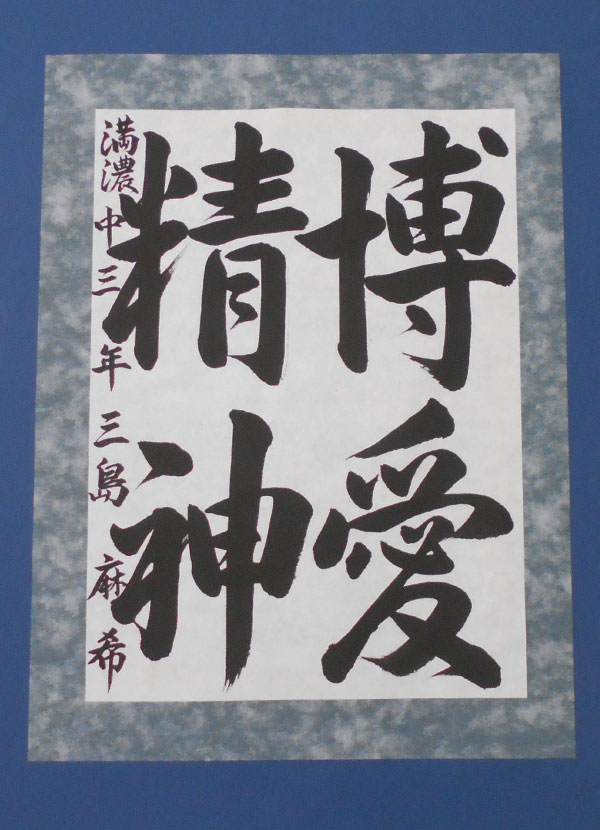 博愛
精神
満濃中三年三島麻希